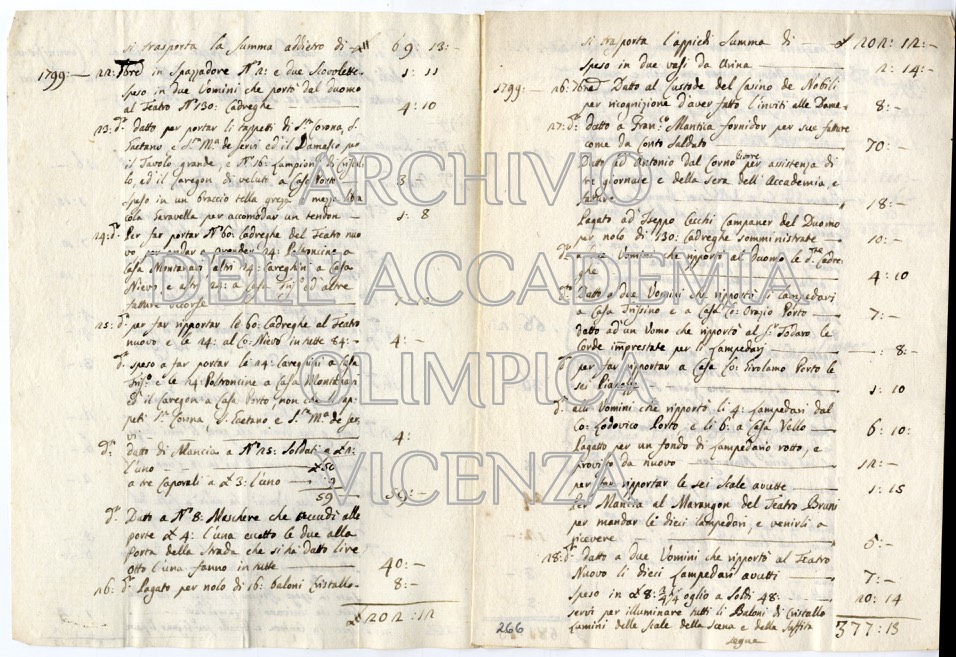 si trasporta la Summa adietro di 69: 13:-
1799:- 22: 7bre in Spazzadore N°2: e due Scovolette 1: 11
Speso in due Uomini che portò dal Duomo
al Teatro N°130: Cadreghe 4: 10
23: dº datto per portar li tappeti di Sta Corona, S.
Gaetano, e Sta Ma de Servi ed il Damasco per
il Tavolo grande, e N°16: Lampioni di Cristal-
lo, ed il Caregon di veluto a Casa Porto 3: -
Speso in un braccio tella greza mezza
per accomodar un tendon 1: 8
24: dº Per far portar N°60: Cadreghe del Teatro nuo
vo 24: Poltroncine a
Casa Montanari altri 24: Careghini a Casa
Nievo e altri 24: a Casa ed altre
fatture
25: dº per far ripportar le 60: Cadreghe al Teatro
nuovo e le 24: al Co: Nievo in tutte 84:- 4: -
dº Speso a far portar le 24: Careghini a Casa
e le 24: Poltroncine a Casa Montanari
il Caregon a Casa Porto, non che
peti Sta Corona, S. Gaetano e Sta Ma de Ser
vi 4:
dº datto di Mancia a N°25: Soldati a 2:
l'uno 50
a tre Caporali a 3: l'uno 9
59 59:-
dº Dato a N°8: Maschere che accudì alle
porte 4: l'una ecetto le due alla
Porta della Strada che si hè datto lire
otto l'una fanno in tutte 40:-
26: dº Pagato per nolo di 16: baloni Cristallo 8:-
202: 12
si trasporta l'appiedi Summa di 202: 12:-
Speso in due vasi da Orina 2: 14:-
1799:- 26: 7bre Dato al Custode del Casino de Nobili
per ricognizione d'aver fatto l'inviti alle Dame 8:-
27: dº datto a Franco Mantica fornidor per sue fatture
come da Conto Saldato 70:-
Dato ad Antonio dal Corno per assistenza di
tre giornate e della sera dell'Accademia, e
fatture 18:-
Pagato ad Iseppo Cecchi Campaner del Duomo
per nolo di 130: Cadreghe somministrate 10:-
dº a Uomini che ripportò al Duomo le dte Cadre-
ghe 4: 10
dº Datto a due Uomini che ripportò li Lampedari
a Casa Trissino e a Casa Co: Orazio Porto 7:-
datto ad un Uomo che ripportò al Sr Todaro le
Corde imprestate per li Lampedari -: 8:-
dº per far ripportar a Casa Co: Girolamo Porto le
sei 1: 10
dº alli Uomini che ripportò li 4: Lampedari dal
Co: Lodovico Porto e li 6: a Casa Vello 6: 10:
Pagatto per un fondo di Lampedaro rotto, e
provisto da nuovo 12:-
per far ripportar le sei Scale avutte 1: 15
Per Mancia al Marangon del Teatro Bruni
per mandar le dieci Lampedari, e venirli a
ricevere 5:-
28: dº datto a due Uomini che ripportò al Teatro
Nuovo li dieci Lampedari avutti 7:-
Speso in 8: 3/4 oglio a Soldi 48: 20: 14
servì per illuminare tutti li Baloni di Cristallo
Lumini delle Scale della Scena e delle Soffitta 377: 13
segue
266
ARCHIVIO
DELL'ACCADEMIA
OLIMPICA
VICENZA